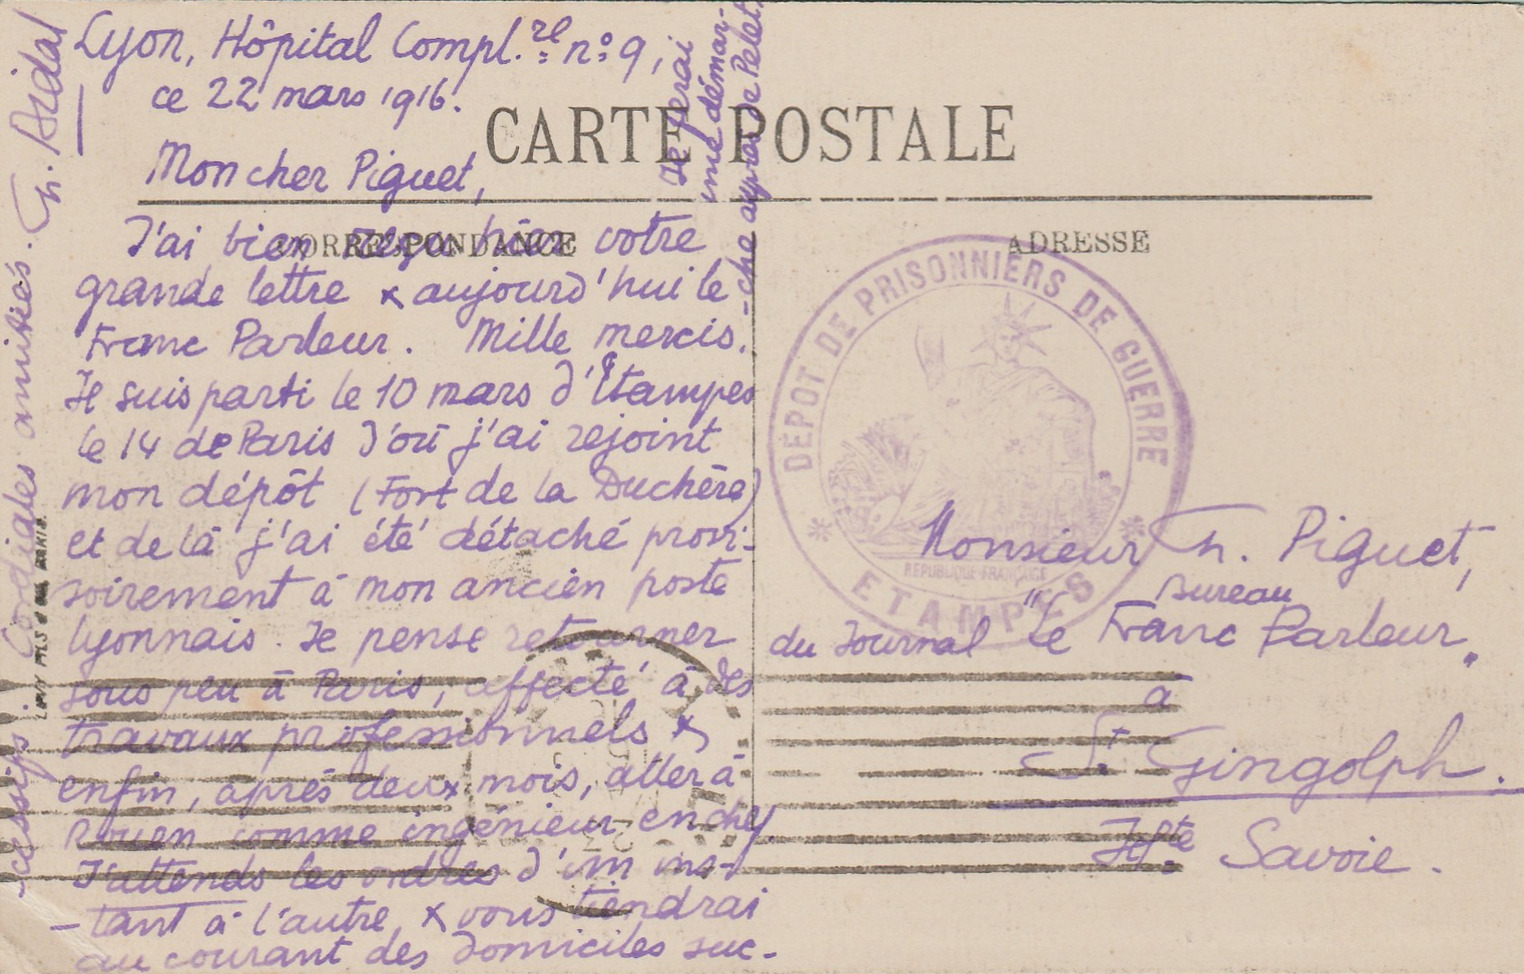 Lyon, Hôpital Compl.re n° 9,
ce 22 mars 1916.
CARTE POSTALE
Mon cher Piguet,
CORRESPONDANCE
ADRESSE
J'ai bien reçu hier votre
grande lettre & aujourd'hui le
Franc Parleur. Mille mercis.
Je suis parti le 10 mars d'Etampes
le 14 de Paris d'où j'ai rejoint
mon dépôt (Fort de la Duchère)
et de là j'ai été détaché provi-
soirement à mon ancien poste
lyonnais. Je pense retourner
sous peu à Paris, affecté à des
travaux professionnels &
enfin, après deux mois, aller à
Rouen comme ingénieur en chef.
J'attends les ordres d'un ins-
-tant à l'autre & vous tiendrai
au courant des domiciles suc-
-cessifs. Cordiales amitiés.
Je ferai
une démar-
-che auprès de Pelet.
DÉPOT DE PRISONNIERS DE GUERRE
RÉPUBLIQUE FRANÇAISE
ETAMPES
Monsieur Th. Piguet,
Bureau
du Journal "Le Franc Parleur"
à
St. Gingolph.
Hte Savoie.